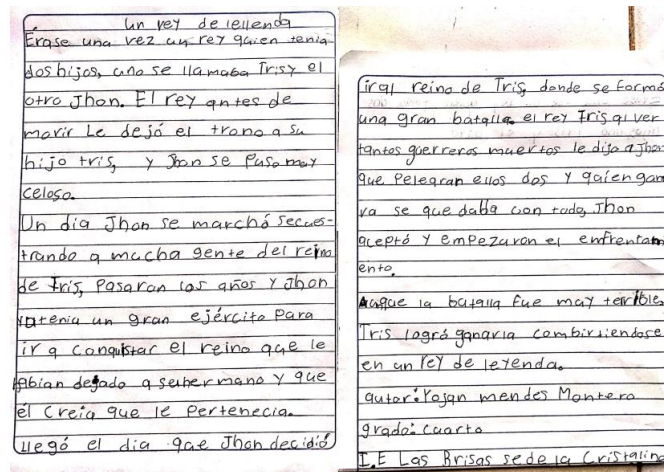 un rey de lellenda
Erase una vez un rey quien tenia
dos hijos, uno se llamaba Tris y el
otro Jhon. El rey antes de
morir Le dejó el trono a su
hijo tris, y Jhon se puso muy
celoso.
Un dia Jhon se marchó secues-
trando a mucha gente del reino
de tris, pasaron los años y Jhon
ya tenia un gran ejército para
ir a conquistar el reino que le
habian dejado a su hermano y que
él creia que le pertenecia.
llegó el dia que Jhon decidió
ir al reino de Tris, donde se formó
una gran batalla. el rey Tris al ver
tantos guerreros muertos le dijo a Jhon
que pelearan ellos dos y quien gana
ra se quedaba con todo, Jhon
aceptó y empezaron el enfrentam
ento.
Aunque la batalla fue muy terrible
Tris logró ganarla combirtiendose
en un rey de leyenda.
autor: Yojan mendes Montero
grado: cuarto
I.E Las Brisas sede la Cristalina